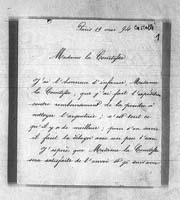 Paris 19 mai 94
Madame la Comtesse
J'ai l'honneur d'informer Madame
la Comtesse, que j'ai fait l'expédition
contre remboursement de la poudre à
nettoyer l'argenterie ; c'est tout ce
qu'il y a de meilleur ; pour s'en servir
il faut la délayer avec un peu d'eau.
J'espère que Madame la Comtesse
sera satisfaite de l'envoi et je suis avec